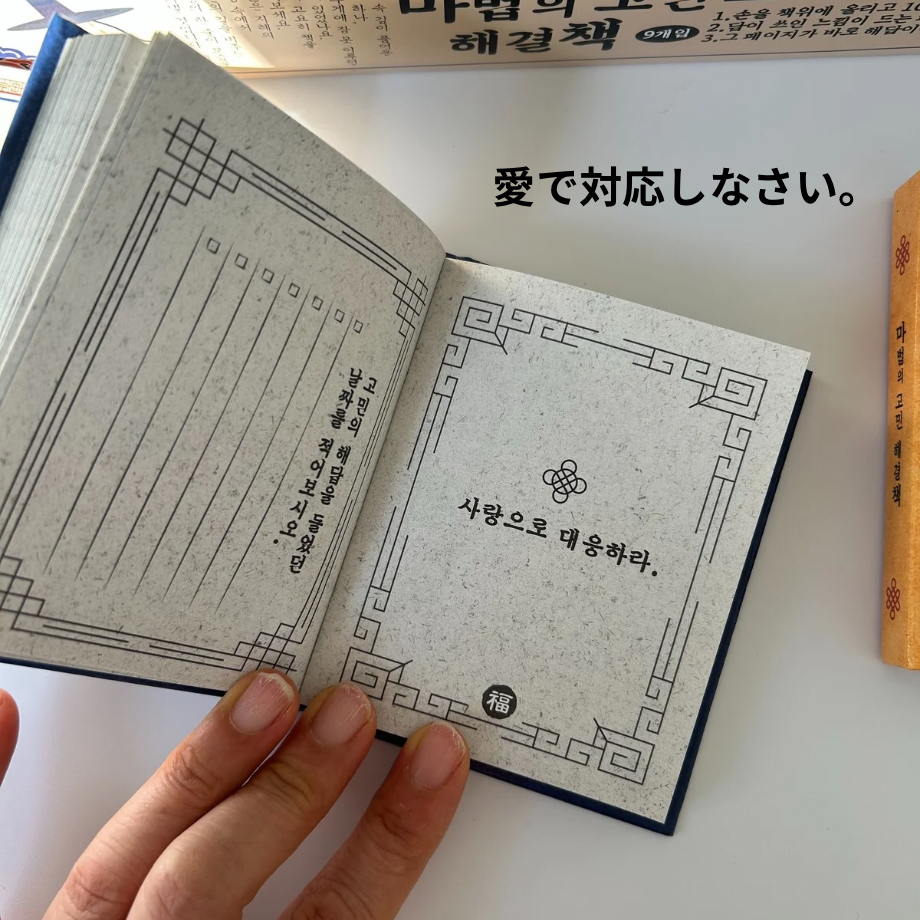 해결책 9개입
1. 손을 책위에 올리고 10
2. 답이 쓰인 느낌이 드는
3. 그 페이지가 바로 해답이
愛で対応しなさい。
고민의 해답을 들었던
날짜를 적어보시오.
사랑으로 대응하라.
福
마법의 고민 해결책